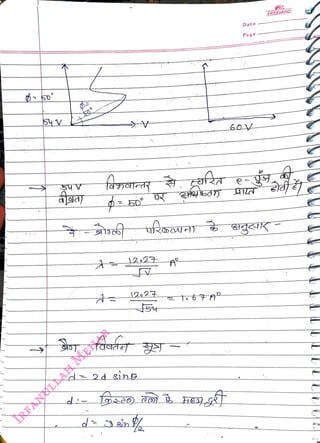 Date
Page
φ = 50°
φ = 50°
54 V
V
60 V
→ 54 V विभवान्तर से त्वरित e- पुंज की
तीव्रता φ = 50° पर अधिकतम प्राप्त होती है।
दे - ब्रोग्ली परिकल्पना के अनुसार -
λ = 12.27 / √V A°
λ = 12.27 / √54 = 1.67 A°
→ ब्रैग विवर्तन सूत्र -
= 2d sinθ
d :- क्रिस्टल तलों के मध्य दूरी
d = sin φ/2
IRFANULLAH